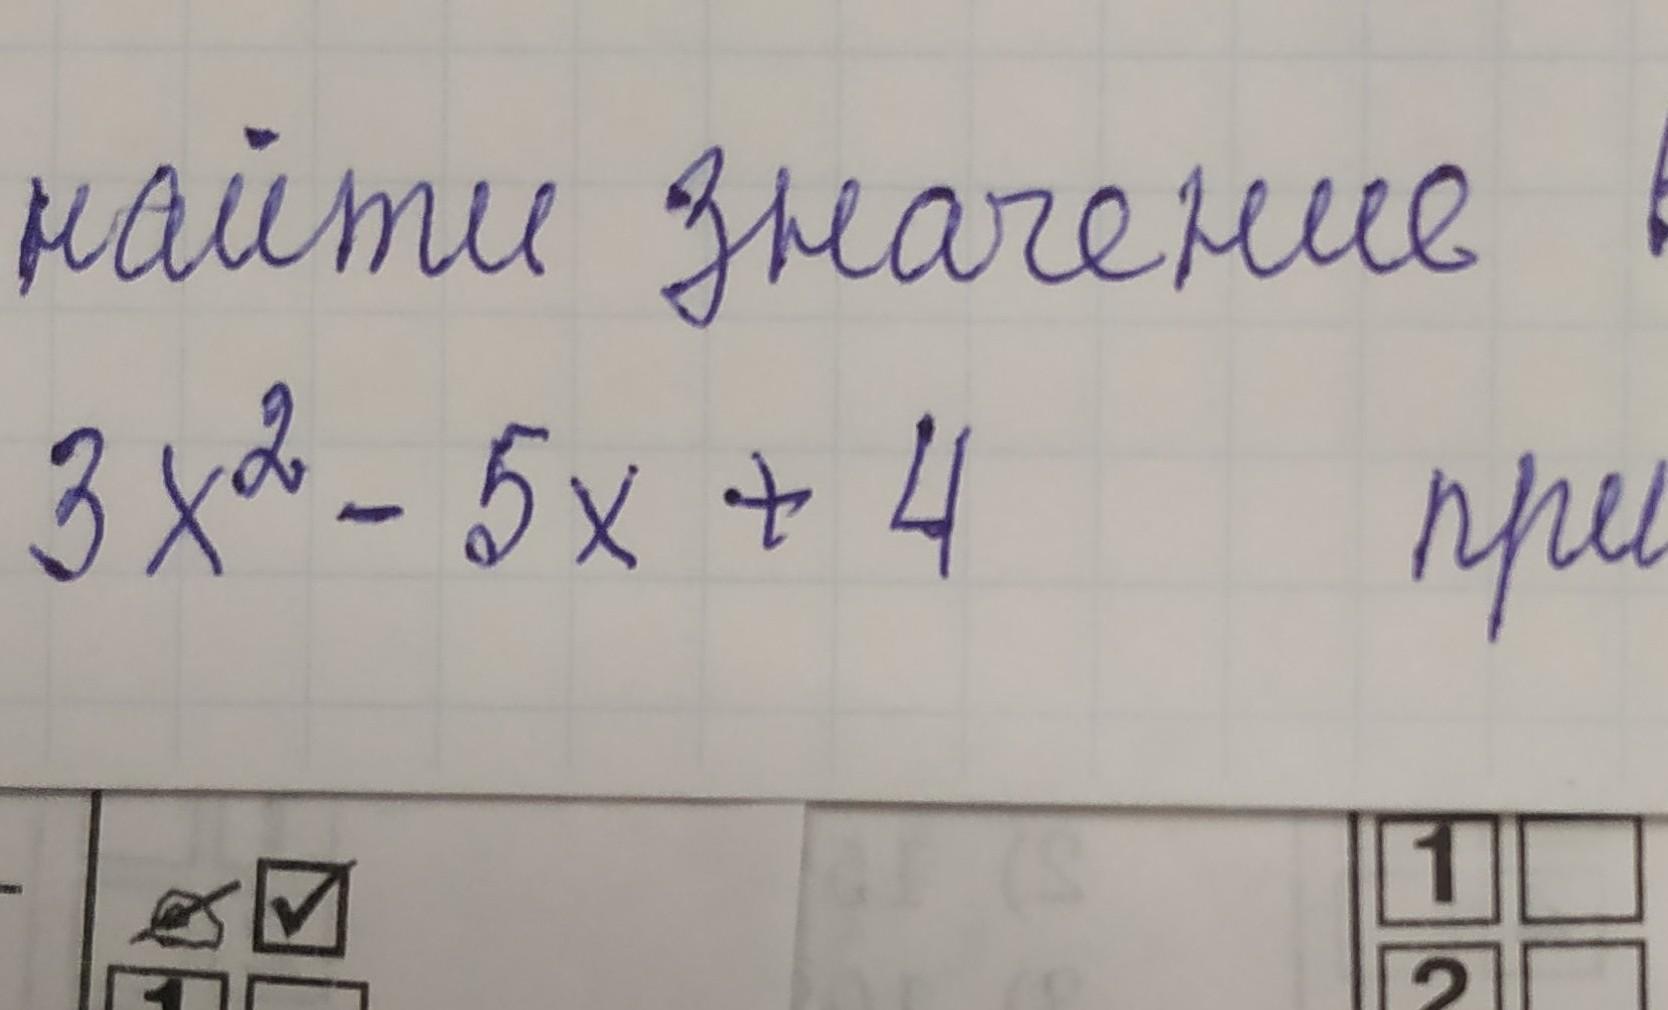 найти значение
3x² - 5x + 4 при
1
2
1